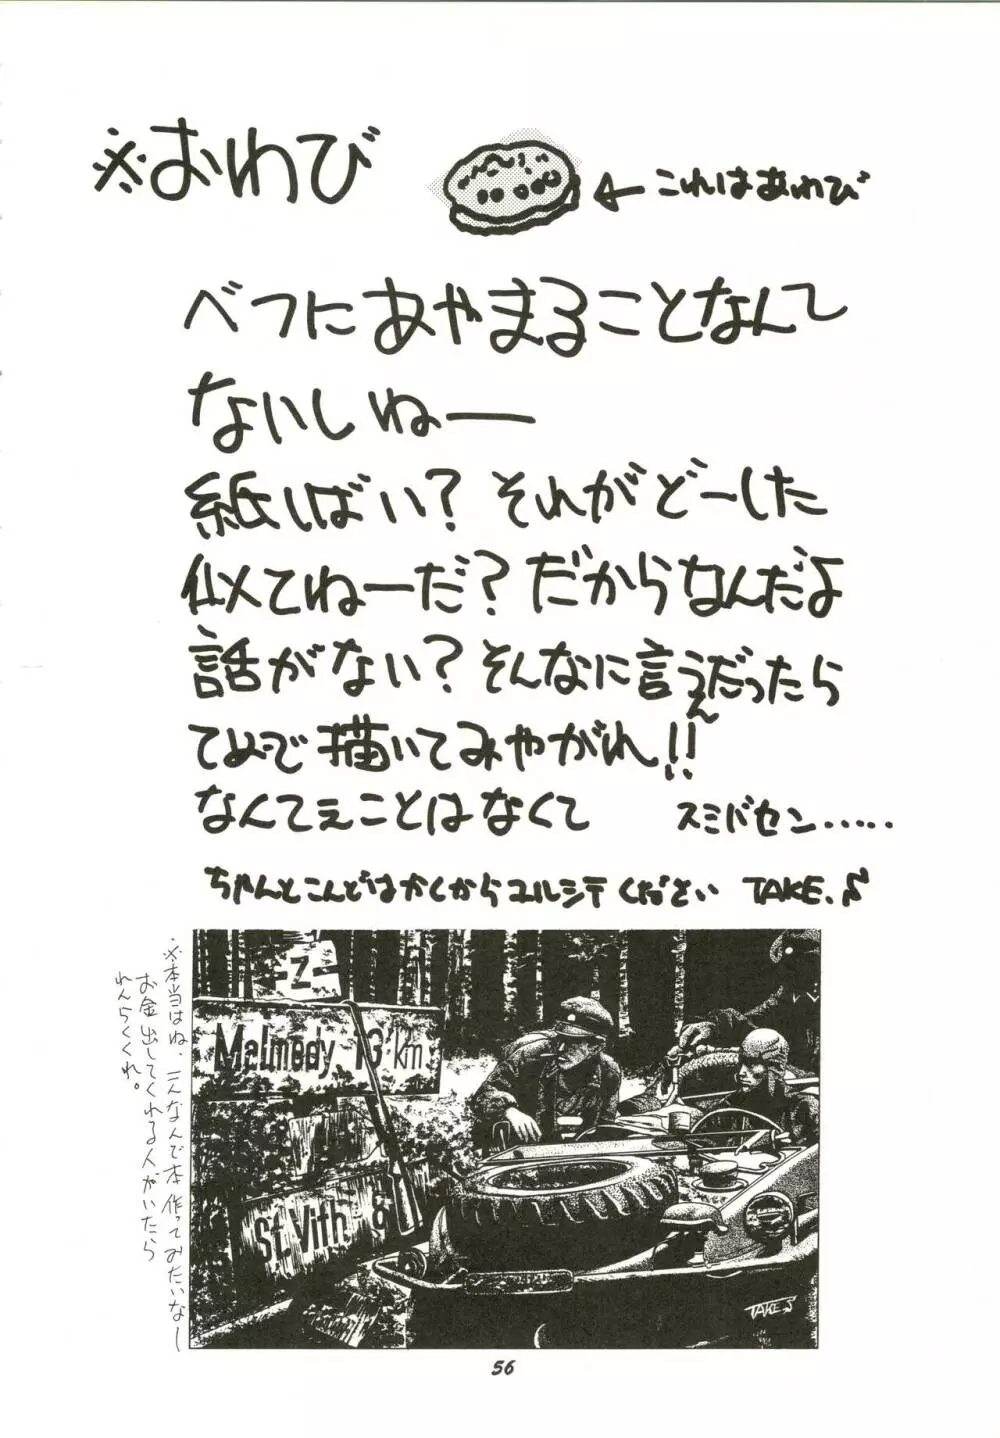 ※おわび
←これはあわび
べつにあやまることなんて
ないしねー
紙しばい？それがどーした
似てねーだ？だからなんだよ
話がない？そんなに言うんだったら
てめーで描いてみやがれ!!
なんてぇことはなくて スミバセン……
ちゃんとこんどはかくからユルシテください TAKE.S
※本当はね、こんなんで本作ってみたいなー
お金出してくれる人がいたら
れんらくくれ。
Z
Malmedy 13 km
St.Vith 9
TAKE.S
56